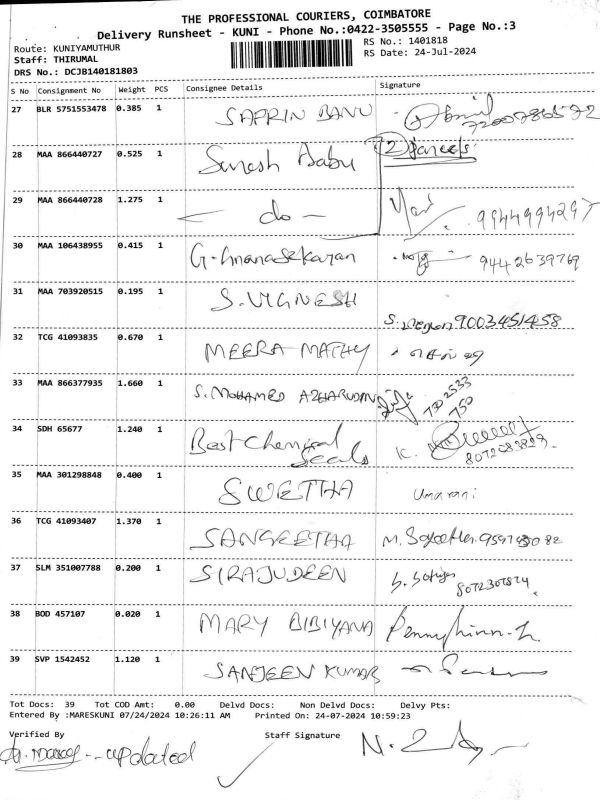 THE PROFESSIONAL COURIERS, COIMBATORE
Delivery Runsheet - KUNI - Phone No.:0422-3505555 - Page No.:3
Route: KUNIYAMUTHUR
RS No.: 1401818
Staff: THIRUMAL
RS Date: 24-Jul-2024
DRS No.: DCJB140181803
S No Consignment No Weight PCS Consignee Details Signature
27 BLR 5751553478 0.385 1 SAFRIN BANU
28 MAA 866440727 0.525 1 Suresh Babu 2 Parcels
29 MAA 866440728 1.275 1 — do — 9944994297
30 MAA 106438955 0.415 1 G. Gnanasekaran 9442639769
31 MAA 703920515 0.195 1 S. VIGNESH S. 9003451458
32 TCG 41093835 0.670 1 MEERA MATHY
33 MAA 866377935 1.660 1 S. MOHAMED AZHARUDIN
34 SDH 65677 1.240 1 Best Chemical Seals K.
35 MAA 301298848 0.400 1 SWETHA Umarani
36 TCG 41093407 1.370 1 SANGEETHA M.
37 SLM 351007788 0.200 1 SIRAJUDEEN
38 BOD 457107 0.020 1 MARY BIBIYANA
39 SVP 1542452 1.120 1 SANJEEN KUMAR
Tot Docs: 39 Tot COD Amt: 0.00 Delvd Docs: Non Delvd Docs: Delvy Pts:
Entered By :MARESKUNI 07/24/2024 10:26:11 AM Printed On: 24-07-2024 10:59:23
Verified By Staff Signature
updated